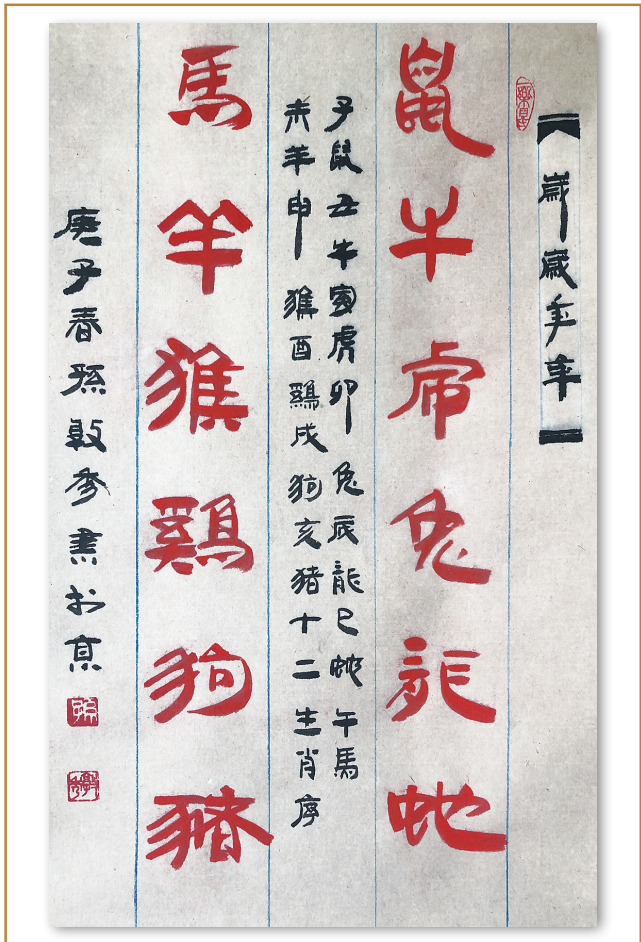 歲歲年年
鼠牛虎兔龍虵
子鼠丑牛寅虎卯兔辰龍巳虵午馬
未羊申猴酉鷄戌狗亥猪十二生肖序
馬羊猴鷄狗豬
庚子春孫敦秀書於京